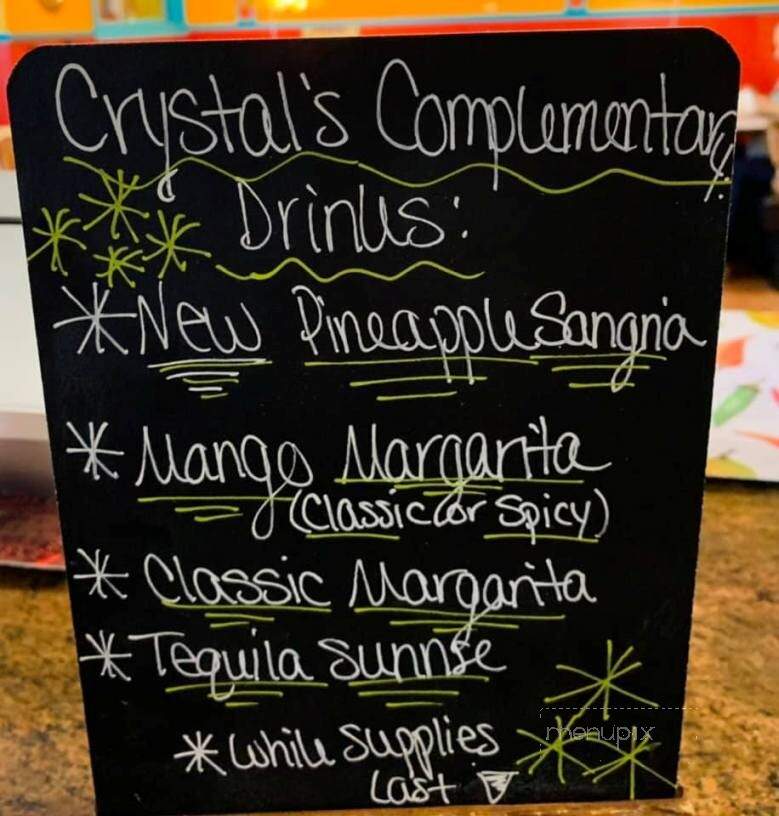 Crystal's Complementary
Drinks:
*New Pineapple Sangria
* Mango Margarita
(Classic or Spicy)
* Classic Margarita
* Tequila Sunrise
* While Supplies
Last
menupix